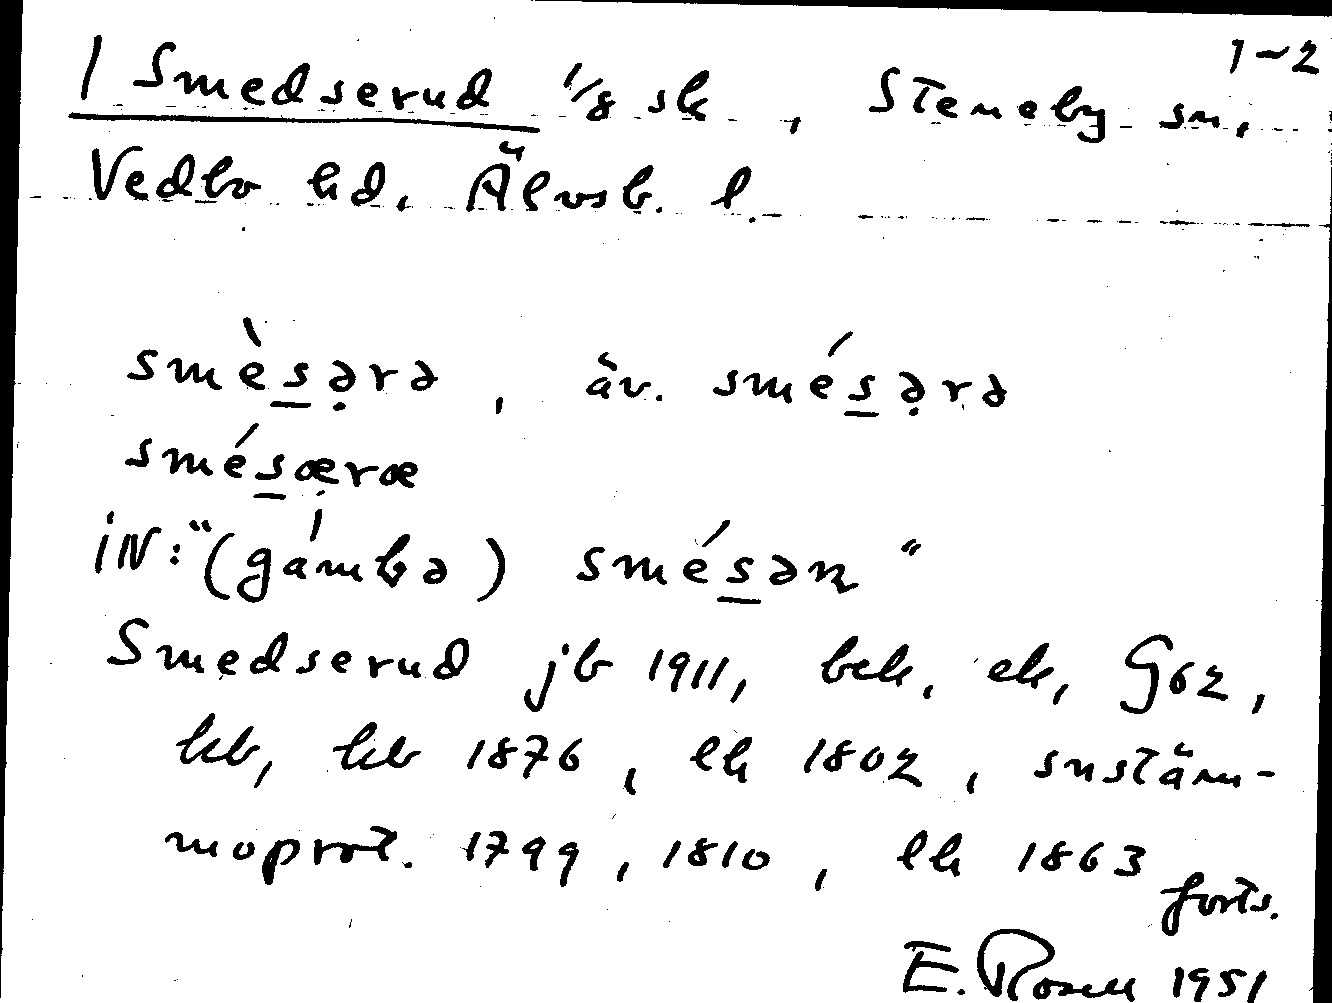 1-2
1 Smedserud 1/8 sk, Steneby sn,
Vedbo hd, Älvsb. l.
smèsə̣rə, äv. smésə̣rə
smésæ̣ræ
iN: "(gámbə) smésəɳ"
Smedserud jb 1911, bek, ek, G62,
kb, kb 1876, lk 1802, snstäm-
moprot. 1799, 1810, lk 1863
forts.
E. Rosell 1951